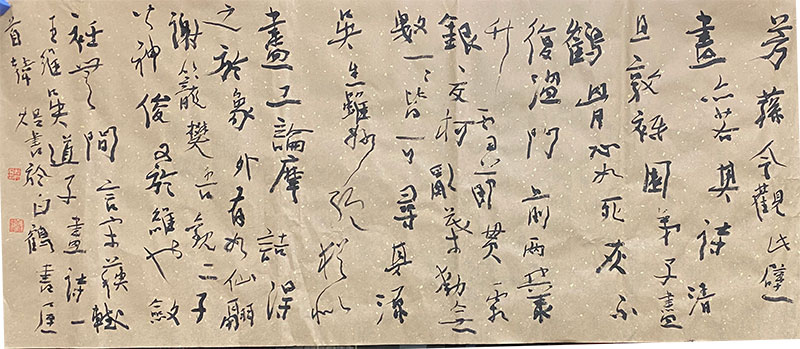 芳蓀今觀此壁
畫亦若其詩清
且敦祇園弟子盡
鶴骨心如死灰不
復溫門前兩叢
竹雪節貫霜
根交柯亂葉動無
數一一皆可尋其源
吳生雖妙絕猶以
畫工論摩詰得
之於象外有如仙翮
謝籠樊吾觀二子
皆神俊又於維也斂
衽無間言宋蘇軾
王維吳道子畫詩一
首韓書於白鶴書屋